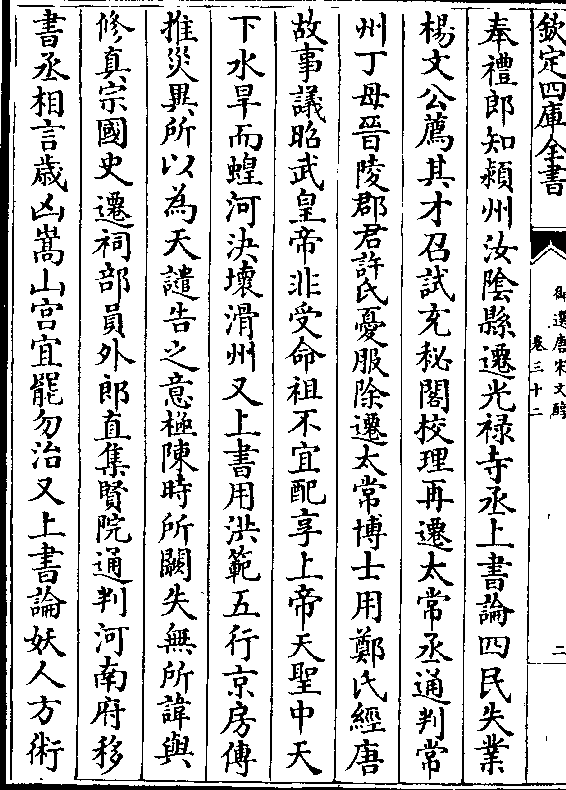 欽定四庫全書
御選唐宋文醇
卷三十二
二
奉禮郎知潁州汝陰縣遷光禄寺丞上書論四民失業
楊文公薦其才召試充秘閣校理再遷太常丞通判常
州丁母晉陵郡君許氏憂服除遷太常博士用鄭氏經唐
故事議昭武皇帝非受命祖不宜配享上帝天聖中天
下水旱而蝗河決壞滑州又上書用洪範五行京房傳
推災異所以為天譴告之意極陳時所闕失無所諱與
修真宗國史遷祠部員外郎直集賢院通判河南府移
書丞相言歳凶嵩山宫宜罷勿治又上書論妖人方術